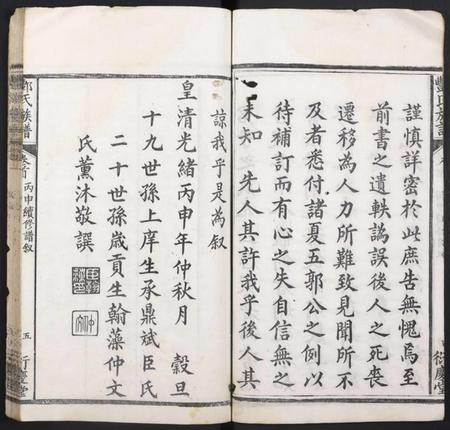 謹慎詳密於此庶告無愧焉至
前書之遺軼譌誤後人之死喪
遷移為人力所難致見聞所不
及者悉付諸夏五郭公之例以
待補訂而有心之失自信無之
未知 先人其許我乎後人其
諒我乎是為叙
皇清光緒丙申年仲秋月 穀旦
十九世孫上庠生承鼎斌臣氏
二十世孫歲貢生翰藻仲文
氏薰沐敬譔
氏族譜
卷首
丙申續修譜叙
五
衍慶堂